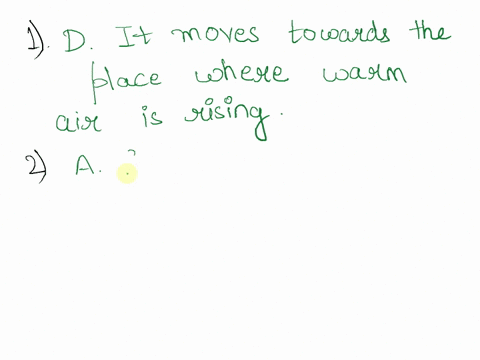 1). D. It moves towards the
place where warm
air is rising.
2) A.